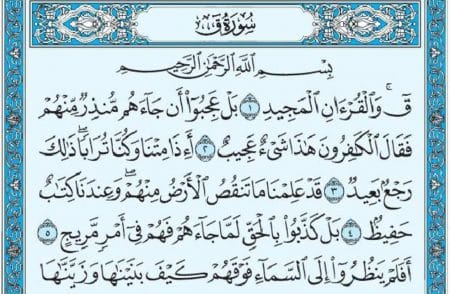 سُورَةُ قٓ
بِسْمِ ٱللَّهِ ٱلرَّحْمَٰنِ ٱلرَّحِيمِ
قٓۚ وَٱلْقُرْءَانِ ٱلْمَجِيدِ ١ بَلْ عَجِبُوٓا۟ أَن جَآءَهُم مُّنذِرٌ مِّنْهُمْ
فَقَالَ ٱلْكَٰفِرُونَ هَٰذَا شَىْءٌ عَجِيبٌ ٢ أَءِذَا مِتْنَا وَكُنَّا تُرَابًاۖ ذَٰلِكَ
رَجْعٌۢ بَعِيدٌ ٣ قَدْ عَلِمْنَا مَا تَنقُصُ ٱلْأَرْضُ مِنْهُمْۖ وَعِندَنَا كِتَٰبٌ
حَفِيظٌۢ ٤ بَلْ كَذَّبُوا۟ بِٱلْحَقِّ لَمَّا جَآءَهُمْ فَهُمْ فِىٓ أَمْرٍ مَّرِيجٍ ٥
أَفَلَمْ يَنظُرُوٓا۟ إِلَى ٱلسَّمَآءِ فَوْقَهُمْ كَيْفَ بَنَيْنَٰهَا وَزَيَّنَّٰهَا